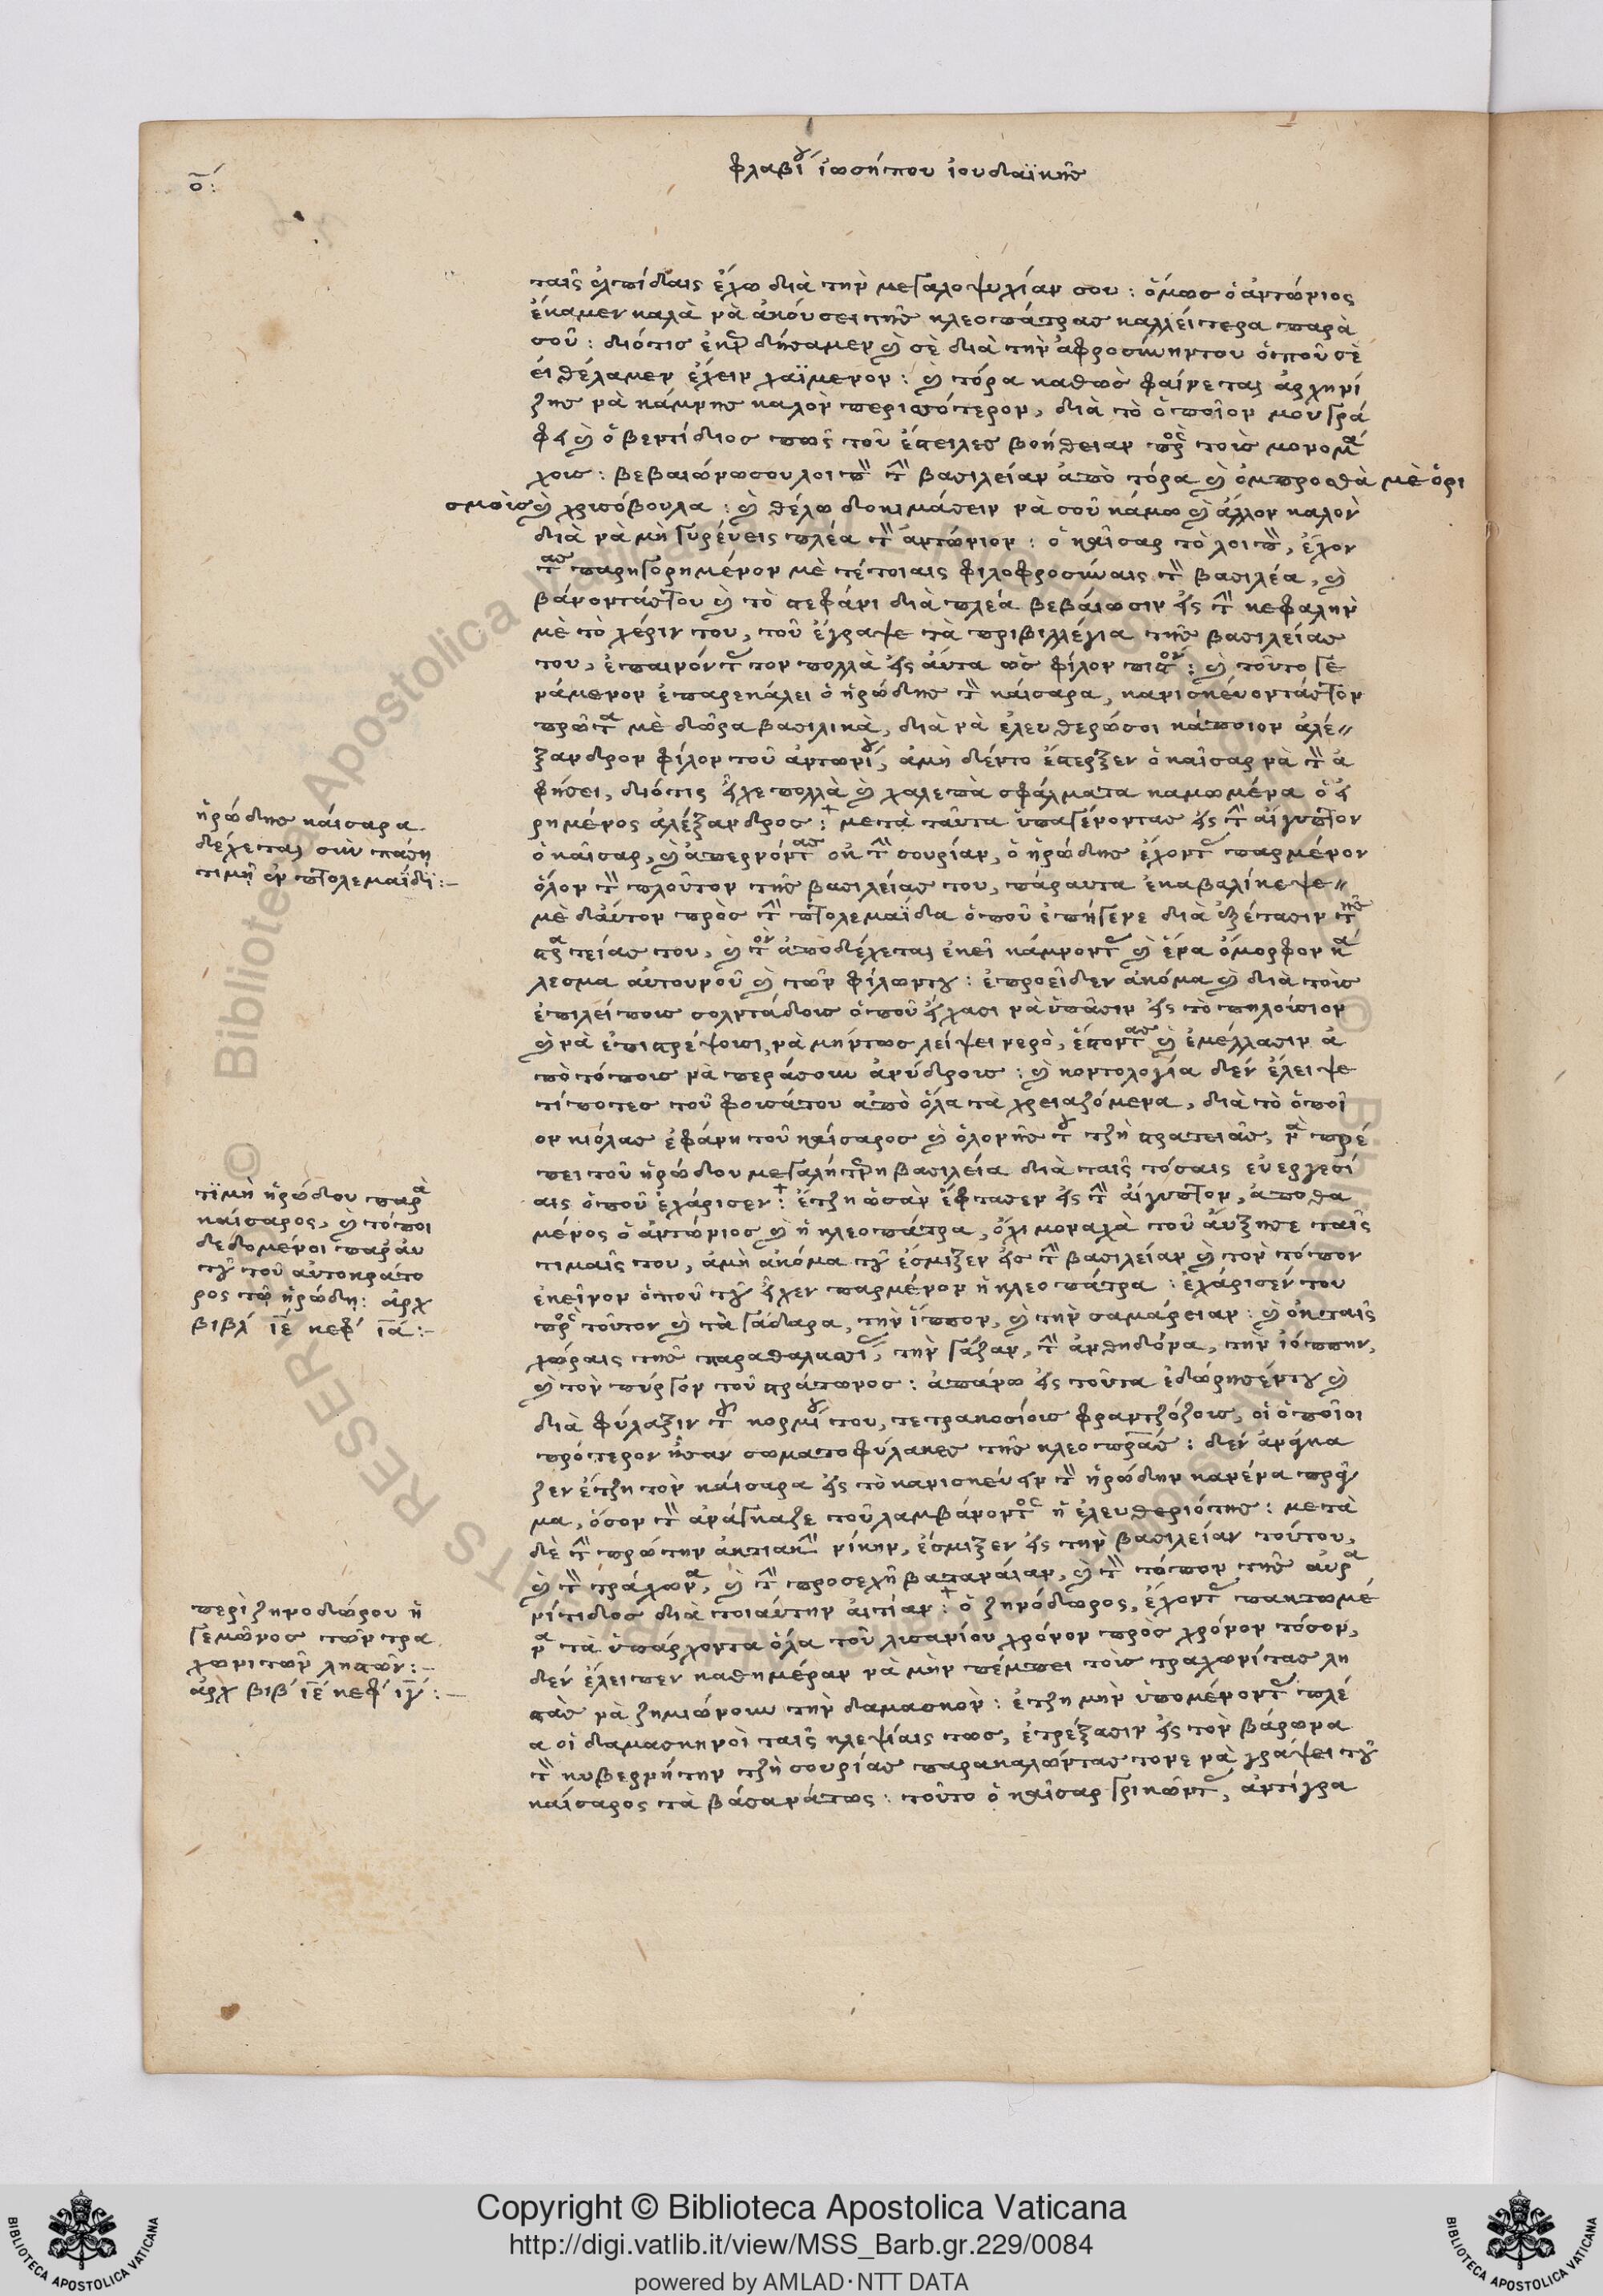 ο:
φλαβίου ἰωσήπου ἰουδαϊκῆς
ταῖς ἐλπίδαις ἔχω διὰ τὴν μεγαλοψυχίαν σου: ὅμως ὁ ἀντώνιος
ἔκαμεν καλὰ νὰ ἀκούσει τῆς κλεοπάτρας καλλίτερα παρὰ
σοῦ: διότις ἐκερδήσαμεν καὶ σὲ διὰ τὴν ἀφροσύνην του ὁποῦ σὲ
εἰθέλαμεν ἔχειν χαϊμενον: καὶ τόρα καθὼς φαίνεται ἀρχηνί
ζης νὰ κάμνης καλὸν περισότερον, διὰ τὸ ὁποῖον μου γρά
φει καὶ ὁ βεντίδιος πῶς τοῦ ἔστειλες βοήθειαν πρὸς τοὺς μονομά
χους: βεβαιώνω σου λοιπὸν τὴν βασιλείαν ἀπὸ τόρα καὶ ὀμπροσθὰ μὲ ὁρι
σμοὺς καὶ χρισόβουλα: καὶ θέλω δοκιμάσειν νὰ σοῦ κάμω καὶ ἄλλον καλὸν
διὰ νὰ μὴ γυρεύεις πλέα τὸν ἀντώνιον: ὁ καῖσαρ τὸ λοιπὸν, ἔχον
τας παρηγορημένον μὲ τέτοιαις φιλοφροσύναις τὸν βασιλέα, καὶ
βάνοντάς του καὶ τὸ στεφάνι διὰ πλεά βεβαίωσιν εἰς τὴν κεφαλὴν
μὲ τὸ χέριν του, τοῦ ἔγραψε τὰ πριβιλλέγια τῆς βασιλείας
του, ἐπαινόντας τον πολλὰ εἰς αὐτα ὡς φίλον πιστόν: καὶ τοῦτο γε
νάμενον ἐπαρεκάλει ὁ ἡρώδης τὸν καίσαρα, κανισκεύοντάς τον
πρῶτα μὲ δῶρα βασιλικὰ, διὰ νὰ ἐλευθερώσοι κάποιον ἀλέ-
ξανδρον φίλον τοῦ ἀντωνίου, ἀμὴ δέντο ἔστερξεν ὁ καῖσαρ νὰ τὸν ἀ
φήσει, διότις εἶχε πολλὰ καὶ χαλεπὰ σφάλματα καμωμένα ὁ εἰ
ρημένος ἀλέξανδρος: + μετὰ ταῦτα ὑπαγένοντας εἰς τὴν αἴγυπτον
ὁ καῖσαρ, καὶ ἀπερνόντας ἐκ τὴν σουρίαν, ὁ ἡρώδης ἔχοντας παρμένον
ὅλον τὸν πλοῦτον τῆς βασιλείας του, πάραυτα ἐκαβαλίκεψε-
μὲ δαύτον πρὸς τὴν πτολεμαΐδα ὁποῦ ἐπήγενε διὰ ἐξέτασιν τῆς
στρατείας του, καὶ τὸν ἀπὸδέχεται ἐκεῖ κάμνοντας καὶ ἕνα ὄμορφον κά
λεσμα αὐτουνοῦ καὶ τῶν φίλωντου: ἐπροεῖδεν ἀκόμα καὶ διὰ τοὺς
ἐπιλείπους σολντάδους ὁποῦ εἴχασι νὰ ὑπᾶσιν εἰς τὸ πηλούσιον
καὶ νὰ ἐπιστρέψουσι, νὰ μήντως λείψει νερὸ, ἔστοντας καὶ ἐμέλλασιν ἀ
πὸ τόπους νὰ περάσουν ἀνύδρους: καὶ κοντολογία δέν ἔλειψε
τίποτες τοῦ φουσάτου ἀπὸ ὅλα τὰ χρειαζόμενα, διὰ τὸ ὁποῖ
ον κιόλας ἐφάνη τοῦ καίσαρος καὶ ὁλονῆς του τζὴ στρατειᾶς, νὰ πρέ
πει τοῦ ἡρώδου μεγαλήτερη βασιλεία διὰ ταῖς τόσαις εὐεργεσί
αις ὁποῦ ἐχάρισεν: + ἔτζη ὡσὰν ἔφτασεν εἰς τὴν αἴγυπτον, ἀποθα
μένος ὁ ἀντώνιος καὶ ἡ κλεοπάτρα, ὄχι μοναχὰ τοῦ αὔξησε ταῖς
τιμαῖς του, ἀμὴ ἀκόμα τοῦ ἔσμιξεν εἰς τὴν βασιλείαν καὶ τὸν τόπον
ἐκεῖνον ὁποῦ τοῦ εἶχεν παρμένον ἡ κλεοπάτρα: ἐχάρισέν του
πρὸς τοῦτον καὶ τὰ γάδαρα, τὴν ἵππον, καὶ τὴν σαμάρειαν: καὶ ἐκ ταῖς
χώραις τῆς παραθαλασσίου, τὴν γάζαν, τὴν ἀνθηδόνα, τὴν ἰόππην,
καὶ τὸν πύργον τοῦ στράτωνος: ἀπάνω εἰς τοῦτα ἐδώρησέντου καὶ
διὰ φύλαξιν τοῦ κορμίου του, τετρακοσίους φραντζόζους, οἱ ὁποῖοι
πρότερον ἦσαν σωματοφύλακες τῆς κλεοπρας: δέν ἀνάγκα
ζεν ἔτζη τὸν καίσαρα εἰς τὸ κανισκεύειν τὸν ἡρώδην κανένα πρᾶγ
μα, ὅσον τὸν ἀνάγκαζε τοῦ λαμβάνοντος ἡ ἐλευθεριότης: μετὰ
δὲ τὴν πρώτην ἀκτιακὴν νίκην, ἔσμιξεν εἰς τὴν βασιλείαν τούτου,
καὶ τὸν τράχωνα, καὶ τὴν προσεχῆ βαταναίαν, καὶ τὸν τόπον τῆς αὐρα
νίτιδος διὰ τοιαύτην αἰτίαν: + ὁ ζηνόδωρος, ἔχοντας πακτωμέ
να τὰ ὑπάρχοντα ὅλα τοῦ λισανίου χρόνον πρὸς χρόνον τόσον,
δέν ἔλειπεν καθημέραν νὰ μὴν πέμπει τοὺς τραχωνίτας λη
στὰς νὰ ζημιώνουν τὴν δαμασκὸν: ἔτζη μὴν ὑπομένοντας πλέ
α οἱ δαμασκηνοὶ ταῖς κλεψίαις τως, ἐτρέξασιν εἰς τὸν βάρωνα
τὸν κυβερνήτην τζὴ σουρίας παρακαλώντας τονε νὰ γράψει τοῦ
καίσαρος τὰ βάσανάτως: τοῦτο ὁ καῖσαρ γρικῶντας, ἀντίγρα
ἡρώδης καίσαρα
δέχεται σὺν πάση
τιμῇ ἐν πτολεμαΐδι:-
τϊμὴ ἡρώδου παρὰ
καίσαρος, καὶ τόποι
δεδομένοι παρ' αὐ
τοῦ τοῦ αὐτοκράτο
ρος τῷ ἡρώδῃ: ἀρχ
βιβλ ιε κεφ ια:-
περὶ ζηνοδώρου ἡ
γεμῶνος τῶν τρα
χωνιτῶν ληστῶν:-
ἀρχ βιβ ιε κεφ ιγ:-
Copyright © Biblioteca Apostolica Vaticana
http://digi.vatlib.it/view/MSS_Barb.gr.229/0084
powered by AMLAD·NTT DATA
BIBLIOTECA APOSTOLICA VATICANA
BIBLIOTECA APOSTOLICA VATICANA